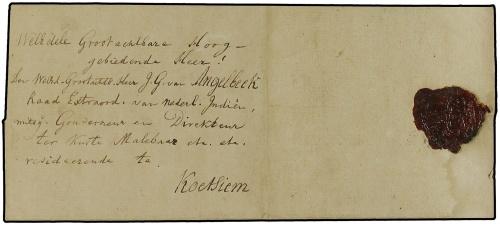 WelEdele Grootachtbare Hoog-
gebiedende Heer!
Den Weled-Grootachtb. Heer J.G. van Angelbeek
Raad Extraord. van nederl. Indiën,
mitsg. Gouverneur en Direkteur
ter Kuste Malebaar etc. etc.
resideerende te
Koetsiem